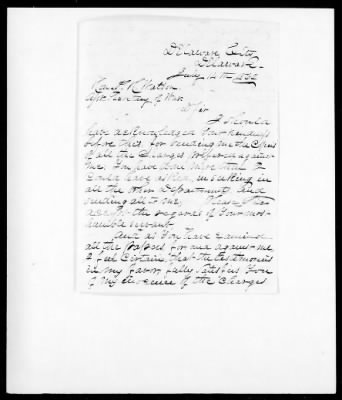 Delaware City
Delaware
July 14th, 1862
P. H. Watson
Asst Secretary of War
Sir
I should
have acknowledged your kindness
before this, for sending me the
of all the charges preferred against
me, you have done more than I
could have asked, in looking in
all the other Departments and
sending all to me, Please
accept the regards of your most
humble servant.
And as you have examined
all the papers for and against me
I feel certain, that the testimonies
in my favor, fully satisfies you
of my inocence of the charges